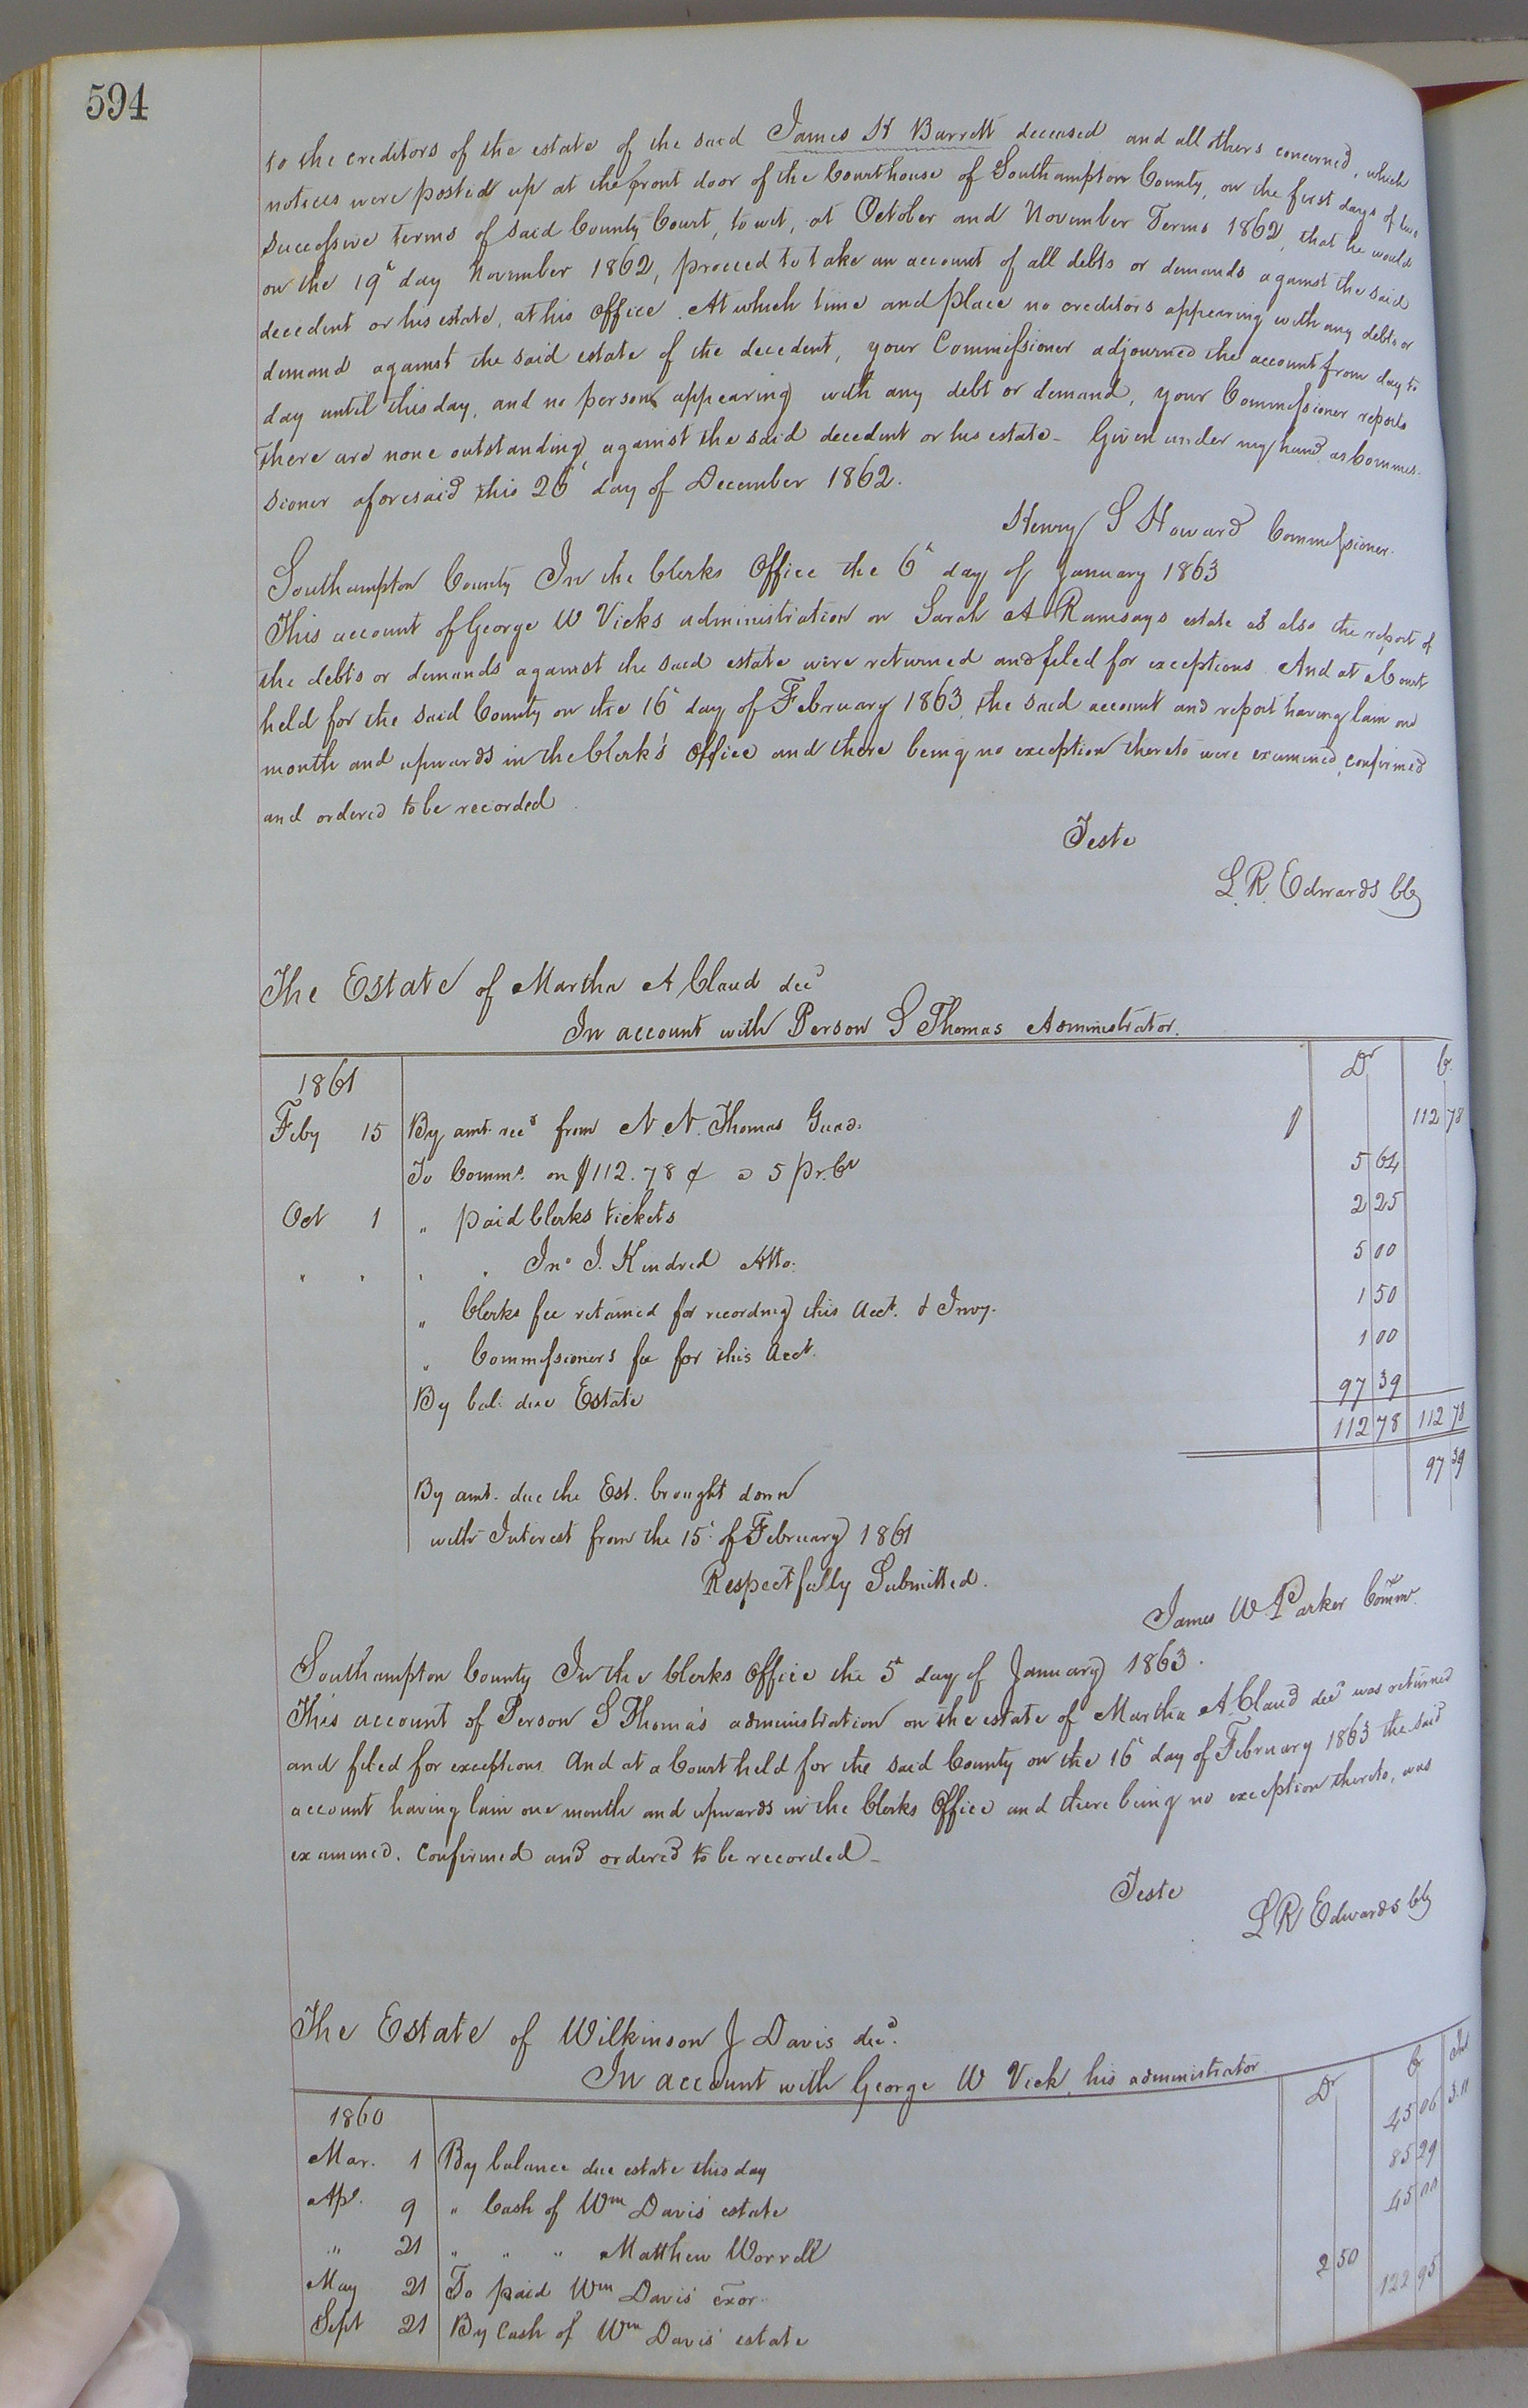 594
to the creditors of the estate of the said James K Barrett deceased and all others concerned, which
notices were posted up at the front door of the Courthouse of Southampton County, on the first days of two
successive terms of said County Court, to wit, at October and November Terms 1862, that he would
on the 19th day November 1862, proceed to take an account of all debts or demands against the said
decedent or his estate, at his office. At which time and place no creditors appearing with any debts or
demand against the said estate of the decedent, your Commissioner adjourned the account from day to
day until this day, and no person appearing with any debt or demand, your Commissioner reports
there are none outstanding against the said decedent or his estate - Given under my hand as Commis-
sioner aforesaid this 26th day of December 1862.
Henry S Howard Commissioner.
Southampton County In the Clerks Office the 6th day of January 1863
This account of George W Vicks administration on Sarah A Ramsays estate as also the report of
the debts or demands against the said estate were returned and filed for exceptions. And at a Court
held for the said County on the 16th day of February 1863, the said account and report having lain one
month and upwards in the Clerk's Office and there being no exception thereto were examined, confirmed
and ordered to be recorded.
Teste
L. R. Edwards Clk
The Estate of Martha A Claud decd
In account with Person S Thomas Administrator.
1861 Dr Cr
Feby 15 By amt. recd from N. N. Thomas Guad. $ 112 78
To Comms. on $112.78 ¢ a 5 pr. Ct 5 64
Oct 1 " paid Clerks tickets 2 25
" " " " Jno J. Kindred Atto. 5 00
" Clerks fee retained for recording this Acct. & Invy. 1 50
" Commissioners fee for this Acct. 1 00
By bal. due Estate 97 39
112 78 112 78
By amt. due the Est. brought down 97 39
with Interest from the 15th of February 1861
Respectfully Submitted.
James W. Parker Comm.
Southampton County In the Clerks Office the 5th day of January 1863.
This account of Person S Thomas administration on the estate of Martha A. Claud decd was returned
and filed for exceptions. And at a Court held for the said County on the 16th day of February 1863 the said
account having lain one month and upwards in the Clerks Office and there being no exception thereto, was
examined. Confirmed and ordered to be recorded -
Teste
L R Edwards Clk
The Estate of Wilkinson J Davis decd.
In account with George W Vick, his administrator
1860 Dr Cr
Mar. 1 By balance due estate this day 45 06 3.11
Apl. 9 " Cash of Wm Davis' estate 85 29
" 21 " " " Matthew Worrell 45 00
May 21 To paid Wm Davis' exor. 2 50
Sept 21 By Cash of Wm Davis' estate 122 95